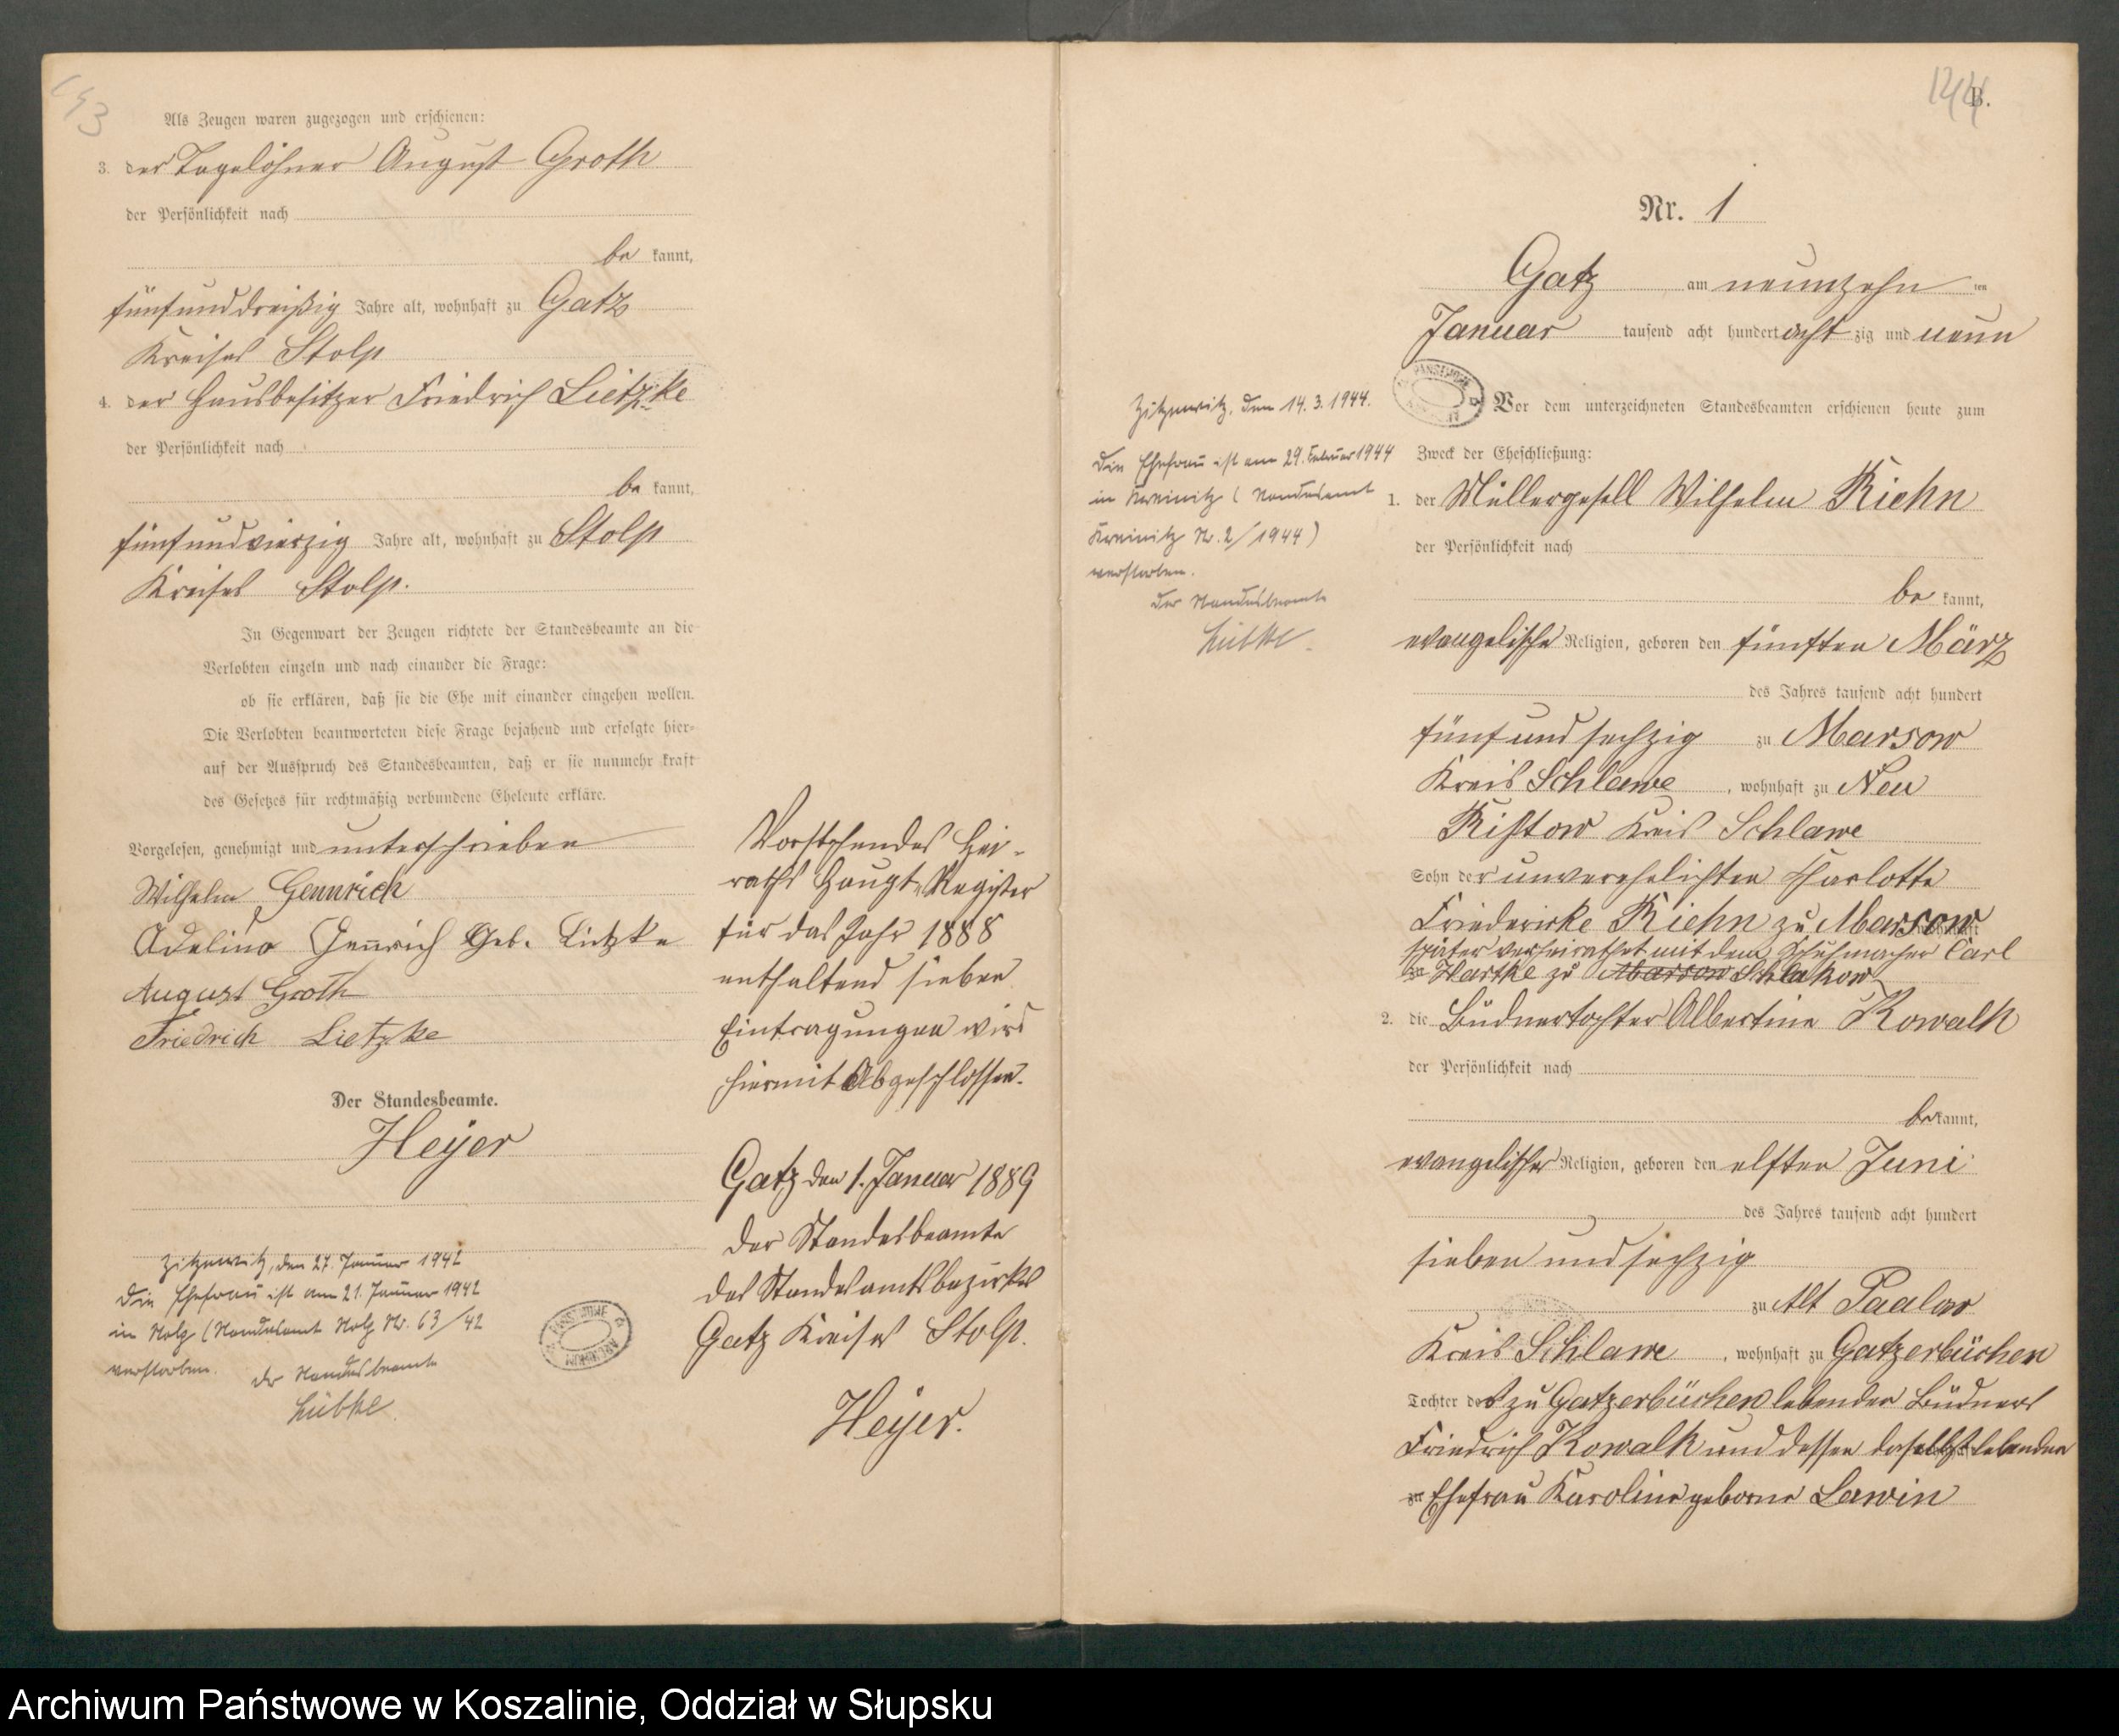 143
Als Zeugen waren zugezogen und erschienen:
3. der Tagelöhner August Groth
der Persönlichkeit nach
be kannt,
fünfunddreißig Jahre alt, wohnhaft zu Gatz
Kreises Stolp
4. der Hausbesitzer Friedrich Lietzke
der Persönlichkeit nach
be kannt,
fünfundvierzig Jahre alt, wohnhaft zu Stolp
Kreises Stolp.
In Gegenwart der Zeugen richtete der Standesbeamte an die
Verlobten einzeln und nach einander die Frage:
ob sie erklären, daß sie die Ehe mit einander eingehen wollen.
Die Verlobten beantworteten diese Frage bejahend und erfolgte hier-
auf der Ausspruch des Standesbeamten, daß er sie nunmehr kraft
des Gesetzes für rechtmäßig verbundene Eheleute erkläre.
Vorgelesen, genehmigt und unterschrieben
Wilhelm Gennrich
Adeline Gennrich Geb. Lietzke
August Groth
Friedrich Lietzke
Der Standesbeamte.
Heyer
Zitzewitz, den 27. Januar 1942
Die Ehefrau ist am 21. Januar 1942
in Stolp (Standesamt Stolp Nr. 63/42
verstorben.
Der Standesbeamte
Lübke
Vorstehendes Hei-
raths Haupt-Register
für das Jahr 1888
enthaltend sieben
Eintragungen wird
hiermit Abgeschlossen.
Gatz den 1. Januar 1889
Der Standesbeamte
des Standesamtsbezirks
Gatz Kreises Stolp.
Heyer.
144
B.
Nr. 1
Gatz am neunzehn ten
Januar tausend acht hundert acht zig und neun
Vor dem unterzeichneten Standesbeamten erschienen heute zum
Zweck der Eheschließung:
1. der Müllergesell Wilhelm Kiehn
der Persönlichkeit nach
be kannt,
evangelische Religion, geboren den fünften März
des Jahres tausend acht hundert
fünf und sechzig zu Marsow
Kreis Schlawe, wohnhaft zu Neu
Ristow Kreis Schlawe
Sohn der unverehelichten Charlotte
Friedericke Kiehn zu Marsow
später verheirathet mit dem Schuhmacher Carl
zu Hartke zu Marsow Schlakow
2. die Büdnertochter Albertine Kowalk
der Persönlichkeit nach
be kannt,
evangelischer Religion, geboren den elften Juni
des Jahres tausend acht hundert
sieben und sechzig
zu Alt Paalow
Kreis Schlawe, wohnhaft zu Gatzerbüchen
Tochter des zu Gatzerbüchen lebenden Büdners
Friedrich Kowalk und dessen daselbst lebenden
zu Ehefrau Karoline geborne Lawin
Zitzewitz, den 14.3.1944.
Die Ehefrau ist am 29. Februar 1944
in (Standesamt
Nr. 2/1944)
verstorben.
Der Standesbeamte
Lübke.
Archiwum Państwowe w Koszalinie, Oddział w Słupsku